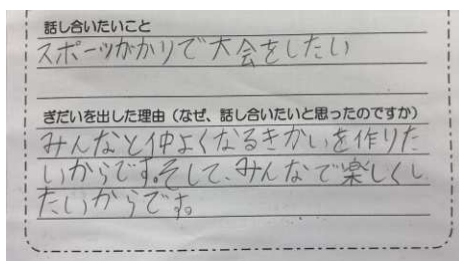 話し合いたいこと
スポーツがかりで大会をしたい
ぎだいを出した理由（なぜ、話し合いたいと思ったのですか）
みんなと仲よくなるきかいを作りた
いからです。そして、みんなで楽しくし
たいからです。